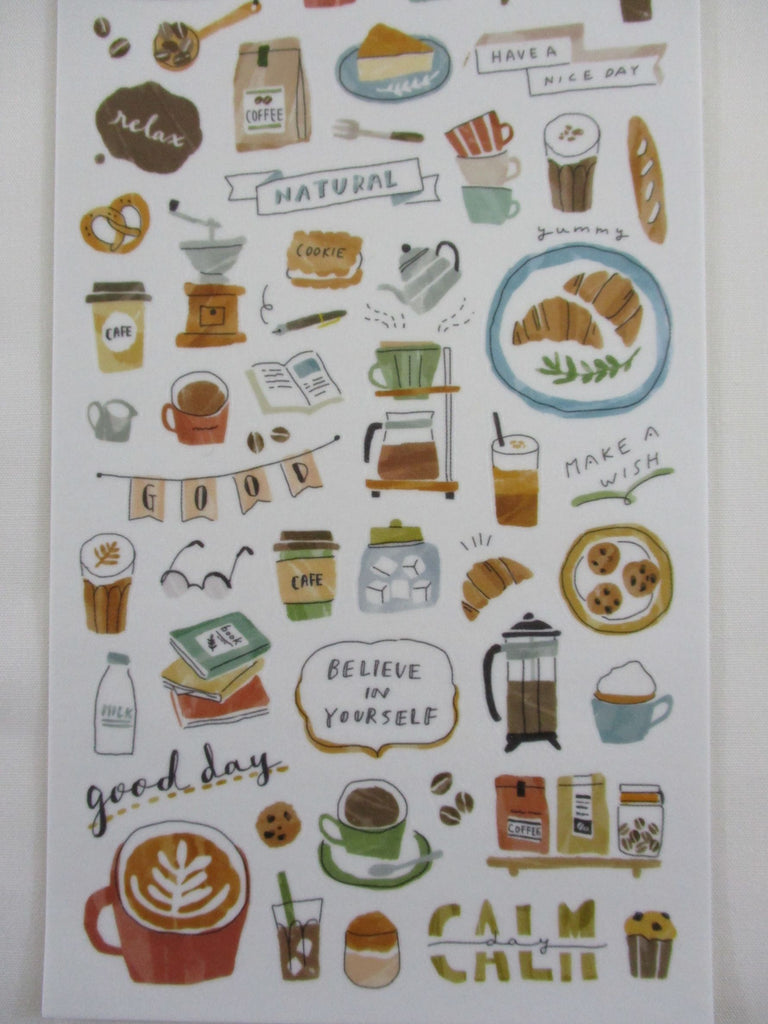 HAVE A
NICE DAY
relax
COFFEE
NATURAL
yummy
COOKIE
CAFE
MAKE A
WISH
GOOD
CAFE
book
BELIEVE
IN
YOURSELF
MILK
good day
COFFEE
CALM
day